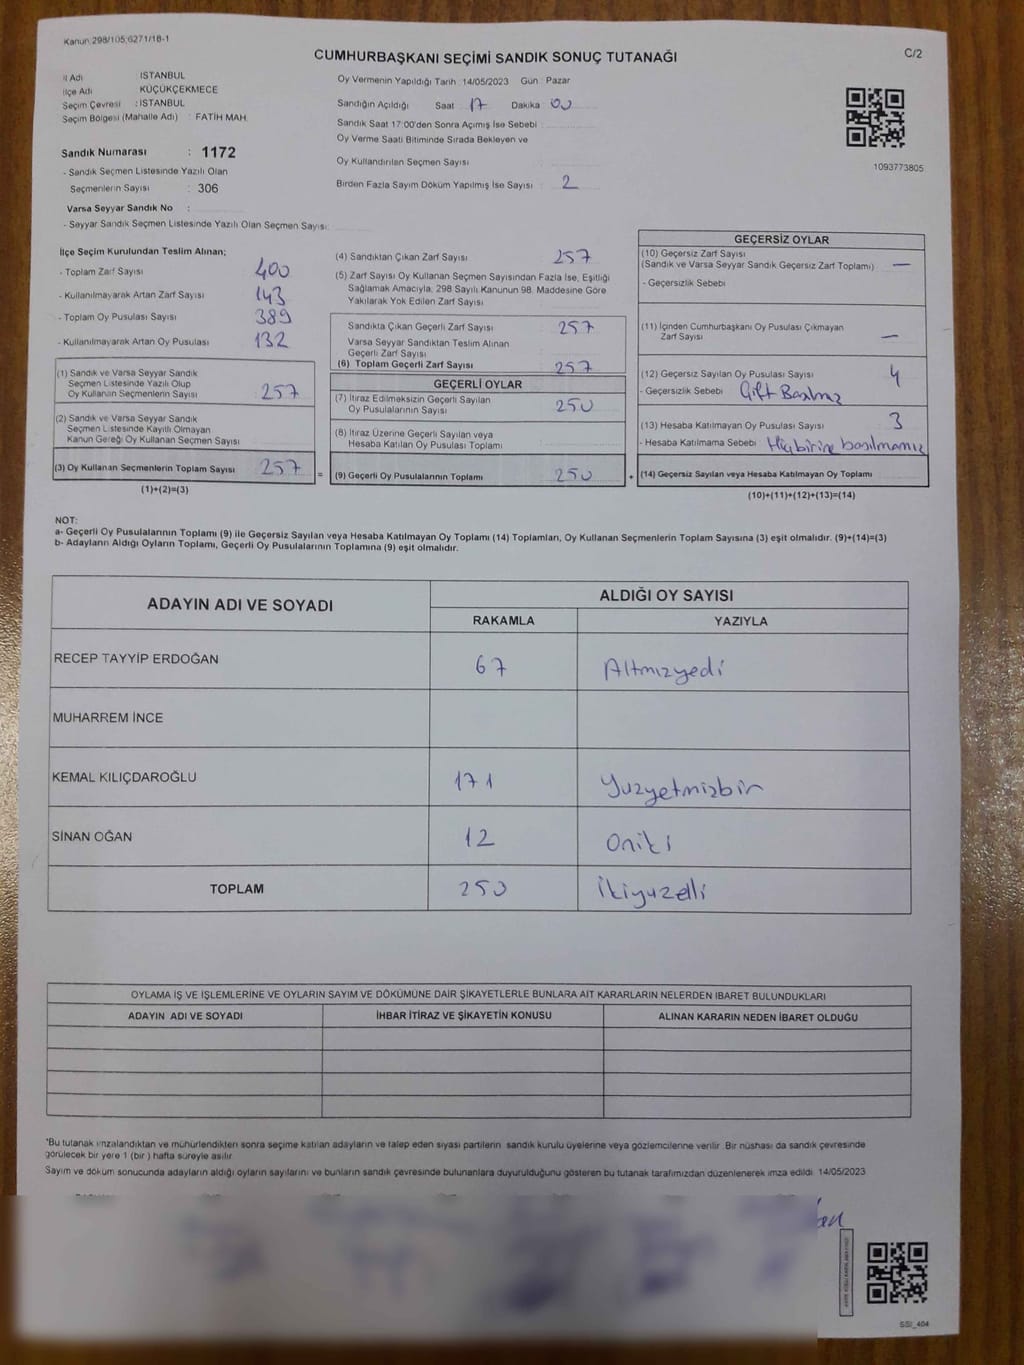 Kanun 298/105;6271/18-1
C/2
CUMHURBAŞKANI SEÇİMİ SANDIK SONUÇ TUTANAĞI
İl Adı : İSTANBUL
İlçe Adı : KÜÇÜKÇEKMECE
Seçim Çevresi : İSTANBUL
Seçim Bölgesi (Mahalle Adı) : FATİH MAH.
Sandık Numarası : 1172
- Sandık Seçmen Listesinde Yazılı Olan
Seçmenlerin Sayısı : 306
Varsa Seyyar Sandık No :
- Seyyar Sandık Seçmen Listesinde Yazılı Olan Seçmen Sayısı:
Oy Vermenin Yapıldığı Tarih :14/05/2023 Gün : Pazar
Sandığın Açıldığı Saat 17 Dakika 00
Sandık Saat 17:00'den Sonra Açımış İse Sebebi :
Oy Verme Saati Bitiminde Sırada Bekleyen ve
Oy Kullandırılan Seçmen Sayısı
Birden Fazla Sayım Döküm Yapılmış İse Sayısı : 2
1093773805
İlçe Seçim Kurulundan Teslim Alınan;
- Toplam Zarf Sayısı : 400
- Kullanılmayarak Artan Zarf Sayısı : 143
- Toplam Oy Pusulası Sayısı : 389
- Kullanılmayarak Artan Oy Pusulası : 132
(1) Sandık ve Varsa Seyyar Sandık
Seçmen Listesinde Yazılı Olup
Oy Kullanan Seçmenlerin Sayısı : 257
(2) Sandık ve Varsa Seyyar Sandık
Seçmen Listesinde Kayıtlı Olmayan
Kanun Gereği Oy Kullanan Seçmen Sayısı :
(3) Oy Kullanan Seçmenlerin Toplam Sayısı : 257
(1)+(2)=(3)
(4) Sandıktan Çıkan Zarf Sayısı : 257
(5) Zarf Sayısı Oy Kullanan Seçmen Sayısından Fazla İse, Eşitliği
Sağlamak Amacıyla, 298 Sayılı Kanunun 98. Maddesine Göre
Yakılarak Yok Edilen Zarf Sayısı :
Sandıkta Çıkan Geçerli Zarf Sayısı : 257
Varsa Seyyar Sandıktan Teslim Alınan
Geçerli Zarf Sayısı :
(6) Toplam Geçerli Zarf Sayısı : 257
GEÇERLİ OYLAR
(7) İtiraz Edilmeksizin Geçerli Sayılan
Oy Pusulalarının Sayısı : 250
(8) İtiraz Üzerine Geçerli Sayılan veya
Hesaba Katılan Oy Pusulası Toplamı :
= (9) Geçerli Oy Pusulalarının Toplamı : 250
GEÇERSİZ OYLAR
(10) Geçersiz Zarf Sayısı
(Sandık ve Varsa Seyyar Sandık Geçersiz Zarf Toplamı) : —
- Geçersizlik Sebebi :
(11) İçinden Cumhurbaşkanı Oy Pusulası Çıkmayan
Zarf Sayısı : —
(12) Geçersiz Sayılan Oy Pusulası Sayısı : 4
- Geçersizlik Sebebi : Çift Basılmış
(13) Hesaba Katılmayan Oy Pusulası Sayısı : 3
- Hesaba Katılmama Sebebi : Hiçbirine basılmamış
+ (14) Geçersiz Sayılan veya Hesaba Katılmayan Oy Toplamı :
(10)+(11)+(12)+(13)=(14)
NOT:
a- Geçerli Oy Pusulalarının Toplamı (9) ile Geçersiz Sayılan veya Hesaba Katılmayan Oy Toplamı (14) Toplamları, Oy Kullanan Seçmenlerin Toplam Sayısına (3) eşit olmalıdır. (9)+(14)=(3)
b- Adayların Aldığı Oyların Toplamı, Geçerli Oy Pusulalarının Toplamına (9) eşit olmalıdır.
ADAYIN ADI VE SOYADI
ALDIĞI OY SAYISI
RAKAMLA YAZIYLA
RECEP TAYYİP ERDOĞAN 67 Altmızyedi
MUHARREM İNCE
KEMAL KILIÇDAROĞLU 171 Yuzyetmizbir
SİNAN OĞAN 12 Oniki
TOPLAM 250 İkiyuzelli
OYLAMA İŞ VE İŞLEMLERİNE VE OYLARIN SAYIM VE DÖKÜMÜNE DAİR ŞİKAYETLERLE BUNLARA AİT KARARLARIN NELERDEN İBARET BULUNDUKLARI
ADAYIN ADI VE SOYADI İHBAR İTİRAZ VE ŞİKAYETİN KONUSU ALINAN KARARIN NEDEN İBARET OLDUĞU
*Bu tutanak imzalandıktan ve mühürlendikten sonra seçime katılan adayların ve talep eden siyasi partilerin sandık kurulu üyelerine veya gözlemcilerine verilir. Bir nüshası da sandık çevresinde
görülecek bir yere 1 (bir ) hafta süreyle asılır.
Sayım ve döküm sonucunda adayların aldığı oyların sayılarını ve bunların sandık çevresinde bulunanlara duyurulduğunu gösteren bu tutanak tarafımızdan düzenlenerek imza edildi. 14/05/2023
SSI_404